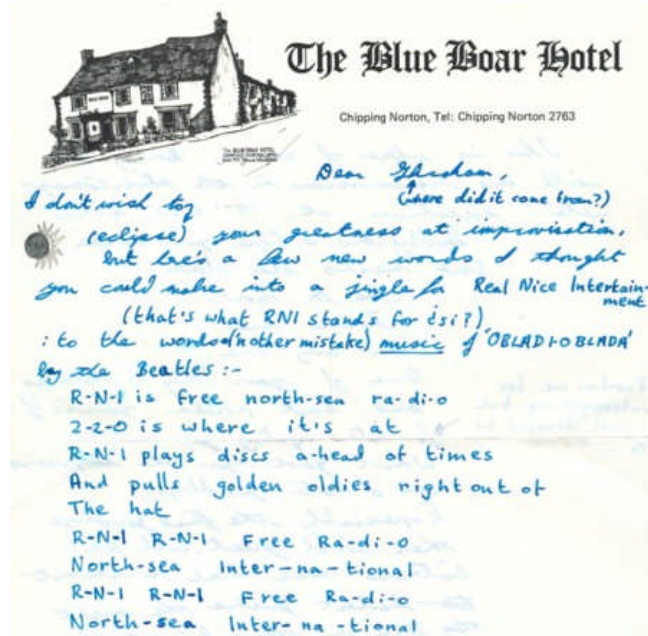 The Blue Boar Hotel
Chipping Norton, Tel: Chipping Norton 2763
The BLUE BOAR HOTEL
Dear Ghraham,
(where did it come from?)
I don't wish to
(eclipse) your greatness at improvisation,
but here's a few new words I thought
you could make into a jingle for Real Nice Intertain-
ment
(that's what RNI stands for isi?)
: to the words (another mistake) music of 'OBLADI-OBLADA'
by the Beatles :-
R-N-I is free north-sea ra-di-o
2-2-0 is where it's at
R-N-I plays discs a-head of times
And pulls golden oldies right out of
The hat
R-N-I R-N-I Free Ra-di-o
North-sea Inter-na-tional
R-N-I R-N-I Free Ra-di-o
North-sea Inter-na-tional